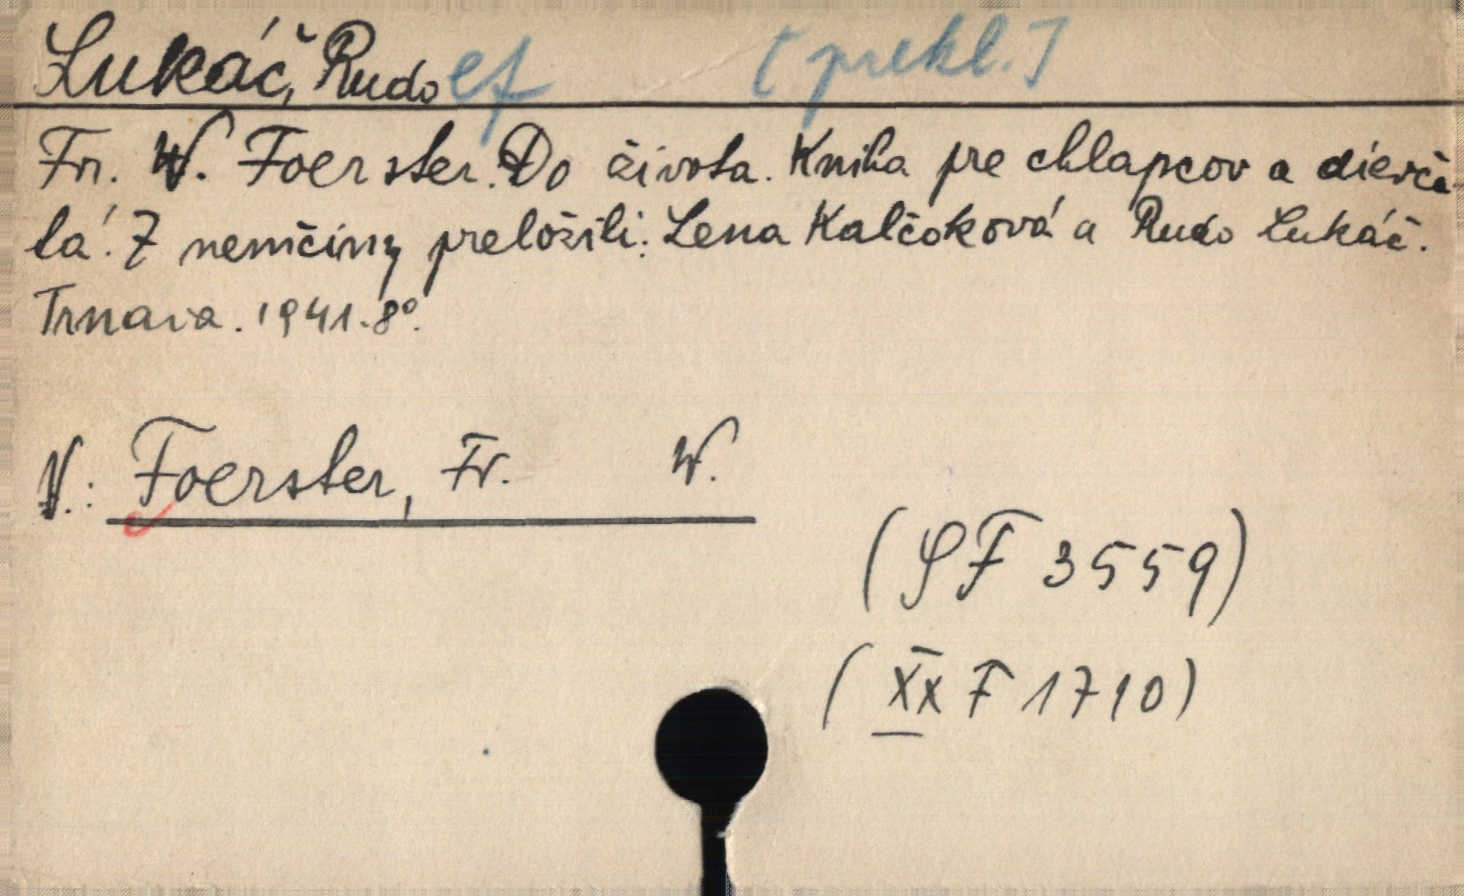 Lukáč, Rudolf [prekl.]
Fr. W. Foerster. Do života. Kniha pre chlapcov a dievča-
tá. Z nemčiny preložili: Lena Kalčoková a Rudo Lukáč.
Trnava. 1941. 8°.
V.: Foerster, Fr. W.
(SF 3559)
(XX F 1710)